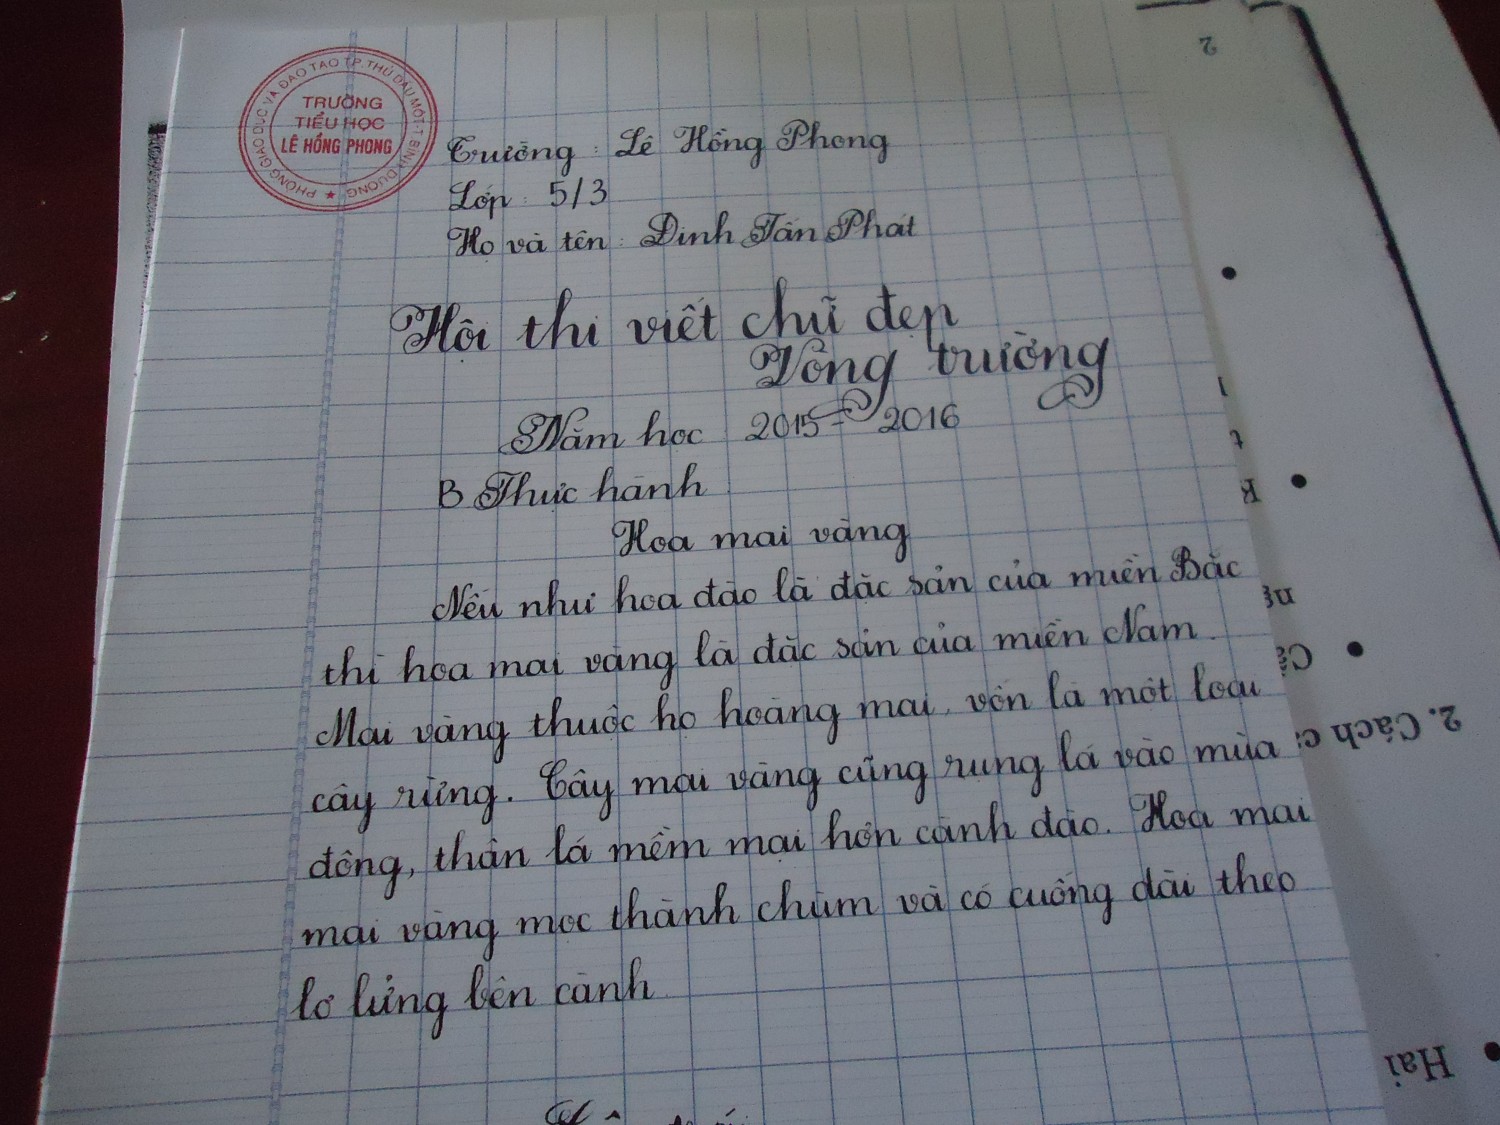 PHÒNG GIÁO DỤC VÀ ĐÀO TẠO TP. THỦ DẦU MỘT-T. BÌNH DƯƠNG
TRƯỜNG
TIỂU HỌC
LÊ HỒNG PHONG
Trường: Lê Hồng Phong
Lớp: 5/3
Họ và tên: Đinh Tấn Phát
Hội thi viết chữ đẹp
Vòng trường
Năm học 2015 - 2016
B Thực hành
Hoa mai vàng
Nếu như hoa đào là đặc sản của miền Bắc
thì hoa mai vàng là đặc sản của miền Nam.
Mai vàng thuộc họ hoàng mai, vốn là một loại
cây rừng. Cây mai vàng cũng rụng lá vào mùa
đông, thân lá mềm mại hơn cành đào. Hoa mai
mai vàng mọc thành chùm và có cuống dài theo
lơ lửng bên cành
2
2. Cách c
Hai